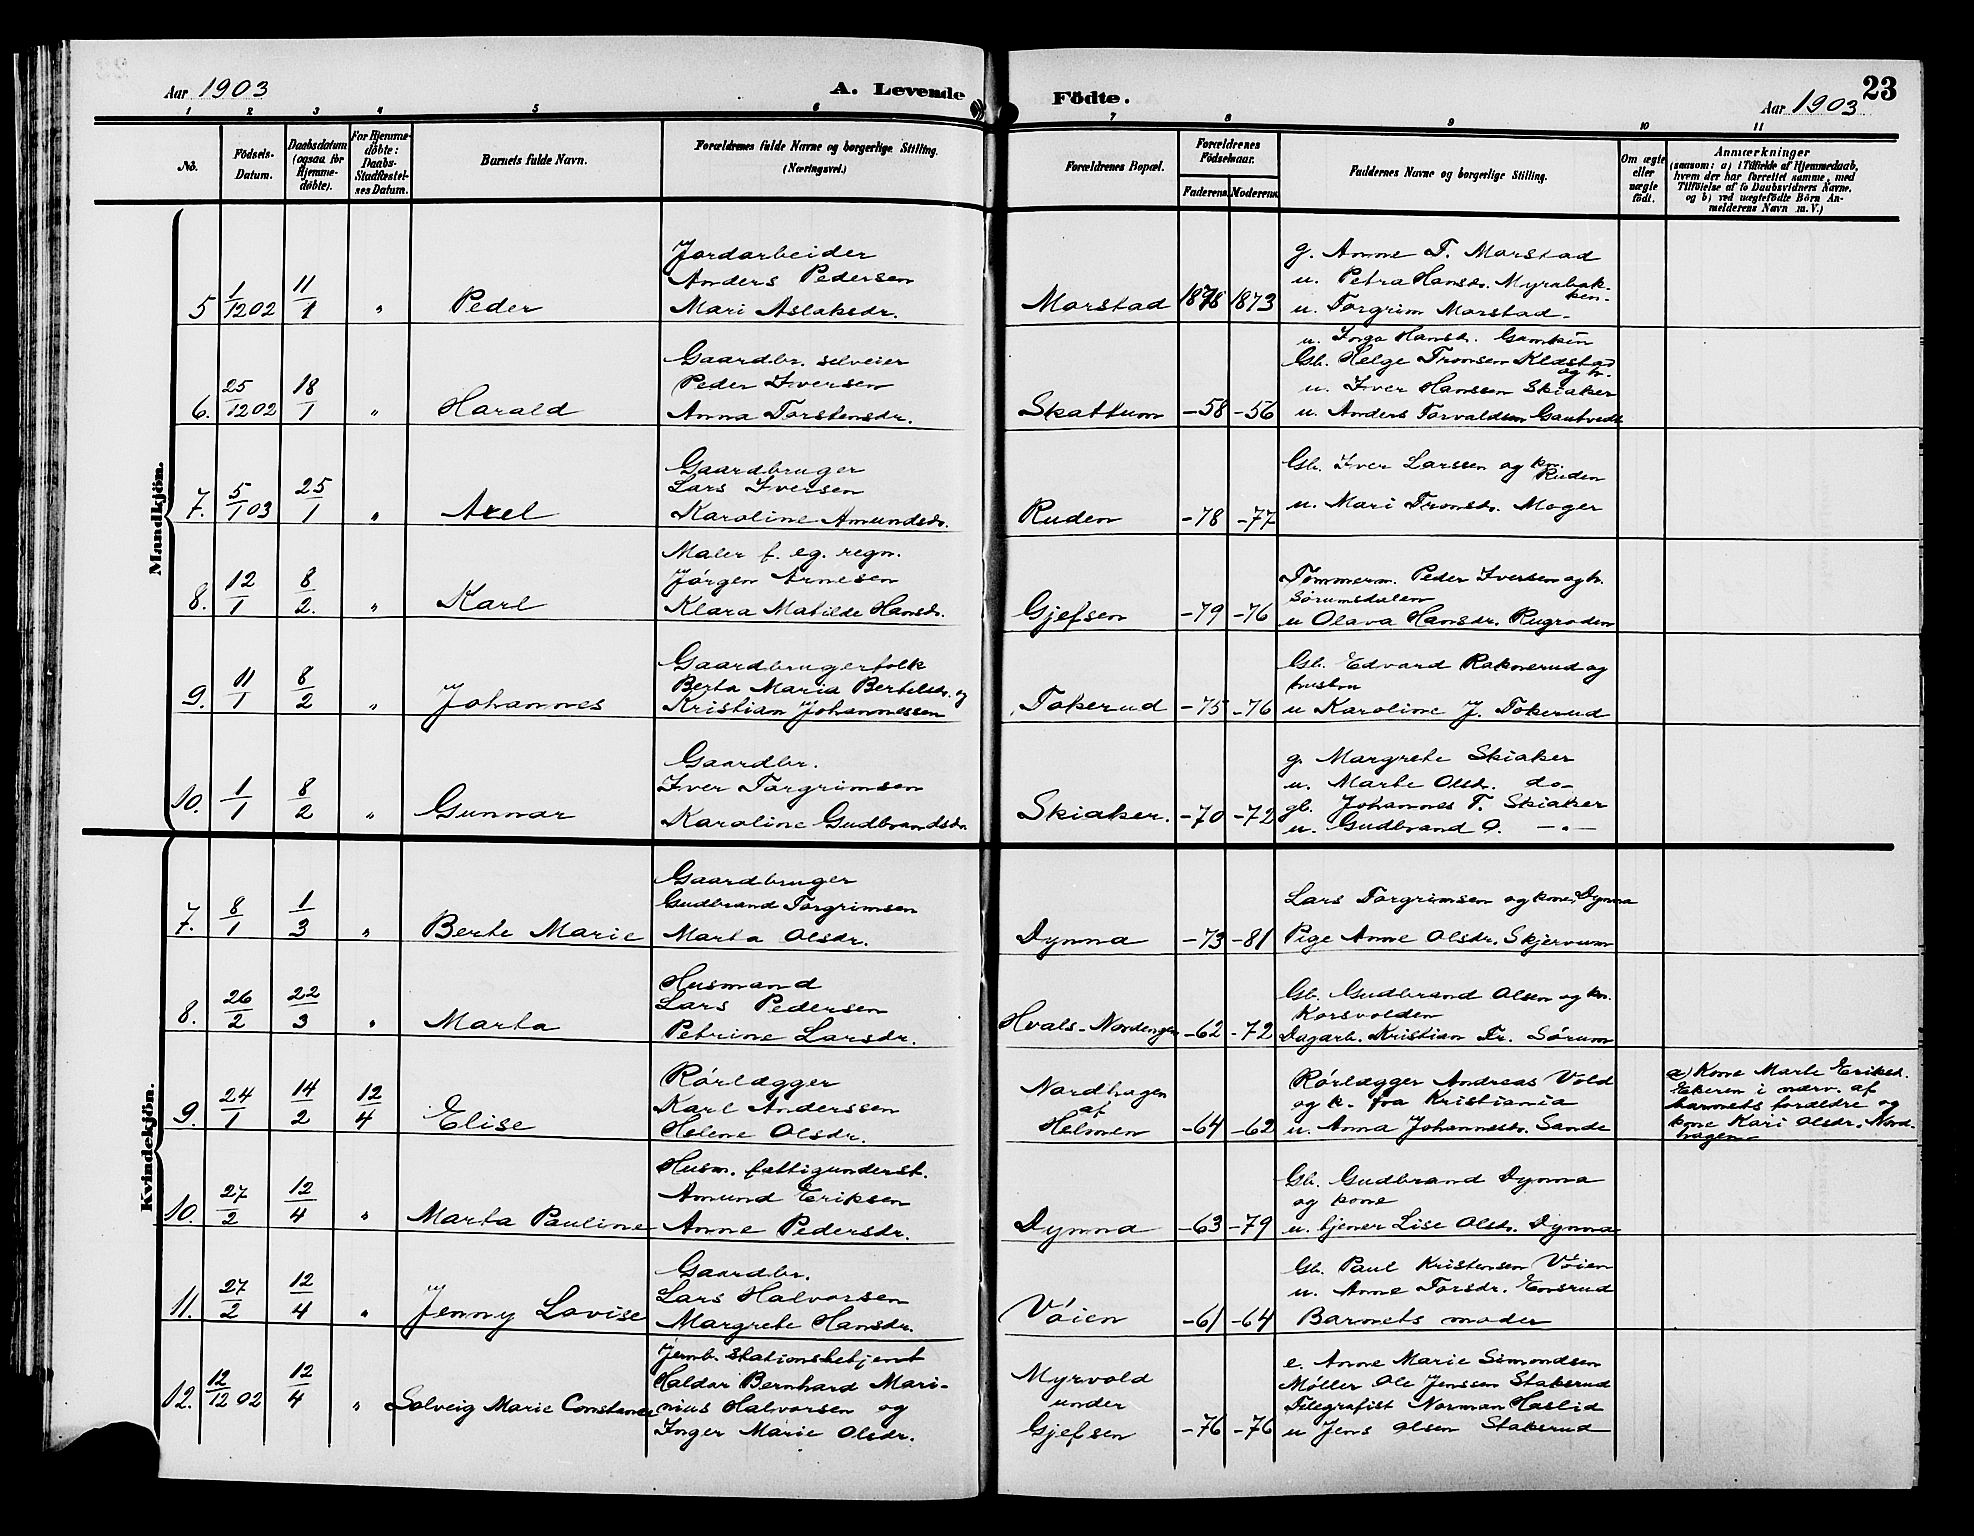 Aar 1903
A. Levende
Födte.
23
Aar 1903
1 2 3 4 5 6 7 8 9 10 11
No.
Födsels-Datum.
Daabsdatum (ogsaa for Hjemmedøbte).
For Hjemmedøbte: Daabs-Stadfæstelses Datum.
Barnets fulde Navn.
Forældrenes fulde Navne og borgerlige Stilling.
(Næringsvei.)
Forældrenes Bopæl.
Forældrenes Födselsaar.
Faderens. Moderens.
Faddernes Navne og borgerlige Stilling.
Om ægte eller uægte födt.
Anmærkninger
(saasom: a) i Tilfælde af Hjemmedaab,
hvem der har forrettet samme, med
Tilföielse af to Daabsvidners Navne,
og b) ved uægtefödte Börn An-
melderens Navn m. V.)
Mandkjön.
5 1/12 02 11/1 " Peder
Jordarbeider
Anders Pedersen
Mari Aslaksdr.
Morstad 1878 1873
g. Anne T. Morstad
u. Petra Hansdr. Myrabak-
ken.
u. Torgrim Morstad
u. Inga Hansdr.
6. 25/12 02 18/1 " Harald
Gaardbr. selveier
Peder Iversen
Anna Torstensdr.
Skattum -58 -56
Gb. Helge Tronsen Klæstad
og k.
u. Iver Hanssen Skiaker
u. Anders Torvaldsen Gautvedt
7. 5/1 03 25/1 " Axel
Gaardbruger
Lars Iversen
Karoline Amundsdr.
Ruden -78 -77
Gb. Iver Larssen og k.
Ruden
u. Mari Tronsdr. Moger
8. 12/1 8/2. " Karl
Maler f. eg. regn.
Jørgen Arnesen
Klara Matilde Hansdr.
Gjefsen -79 -76
Tømmerm. Peder Iversen og k.
Sørumsdalen
u Olava Hansdr. Rugroden
9. 11/1 8/2 " Johannes
Gaardbrugerfolk
Berta Maria Bertelsdr. og
Kristian Johannessen
Tokerud -75 -76
Gb. Edvard Raknerud og
hustru
u Karoline J. Tokerud
10. 1/1 8/2 " Gunnar
Gaardbr.
Iver Torgrimsen
Karoline Gudbrandsdr.
Skiaker. -70 -72
g. Margrete Skiaker
u. Marte Olsdr. do
gb. Johannes T. Skiaker
u. Gudbrand O. —"—
Kvindekjön.
7. 8/1 1/3 " Berte Marie
Gaardbruger
Gudbrand Torgrimsen
Marta Olsdr.
Dynna -73 -81
Lars Torgrimsen og kone, Dynna
Pige Anne Olsdr. Skjervum
8. 26/2 22/3 " Marta
Husmand
Lars Pedersen
Petrine Larsdr.
Hvals-Nordengen -62 -72
Gb. Gudbrand Olsen og kn.
Korsvolden
Dagarb. Kristian Fr. Sørum
9. 24/1 14/2 12/4 Elise
Rørlægger
Karl Anderssen
Helene Olsdr.
Nordhagen
af
Helmen -64 -62
Rørlægger Andreas Vold
og k. fra Kristiania
u. Anna Johannesdr. Sande
a) Kone Marte Eriksd.
Ekeren i nærv. af
barnets forældre og
kone Kari Olsdr. Nord-
hagen
10. 27/2 12/4 " Marta Pauline
Husm. fattigunderst.
Amund Eriksen
Anne Pedersdr.
Dynna -63 -79
Gb. Gudbrand Dynna
og kone
u. tjener Lise Olsdr. Dynna
11. 27/2 12/4 " Jenny Lovise
Gaardbr.
Lars Halvorsen
Margrete Hansdr.
Vøien -61 -64
Gb. Paul Kristensen Vøien
u. Anne Torsdr. Ensrud
Barnets moder
12. 12/12 02 12/4 " Solveig Marie Constance
Jernb. stationsbetjent
Haldor Bernhard Mari-
nius Halvorsen og
Inger Marie Olsdr.
Myrvold
under
Gjefsen -76 -76
e. Anne Marie Simondsen
Møller Ole Jenssen Stakerud
Telegrafist Norman Haslid
u Jens Olsen Stakerud